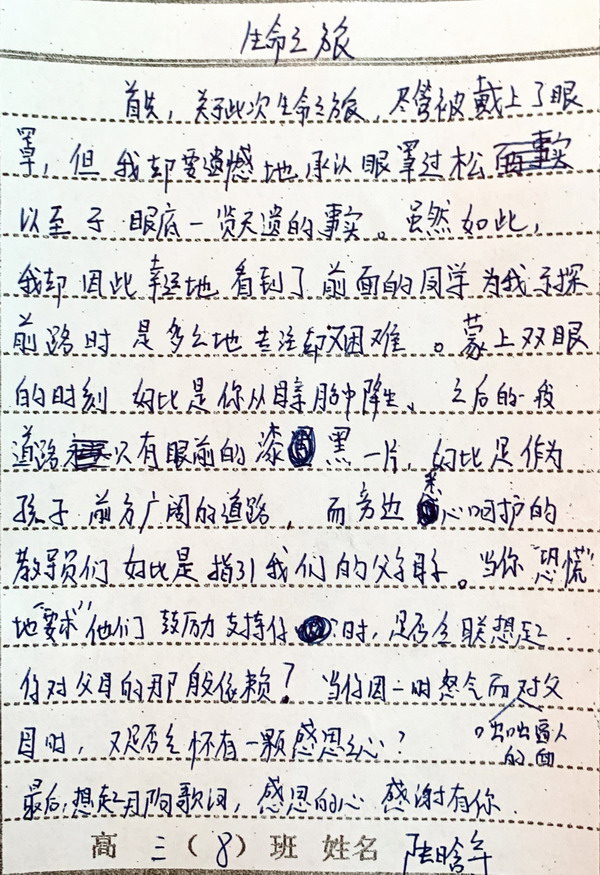 生命之旅
首先，关于此次生命之旅，尽管被戴上了眼
罩，但我却要遗憾地承认眼罩过松
以至于眼底一览无遗的事实。虽然如此，
我却因此幸运地看到了前面的同学为我 探
前路时是多么地专注却又困难。蒙上双眼
的时刻 好比是你从母亲胎中降生、之后的一段
道路 只有眼前的漆黑一片，好比是作为
孩子前方广阔的道路，而旁边悉心呵护的
教导员们好比是指引我们的父母。当你“恐慌”
地“要求”他们鼓励支持你时，是否会联想起
你对父母的那般依赖？当你因一时怒气而对父
母时，又是否会怀有一颗感恩之心？
咄咄逼人
的面
最后，想起 歌词，感恩的心 感谢有你
高三（8）班 姓名 陆晗